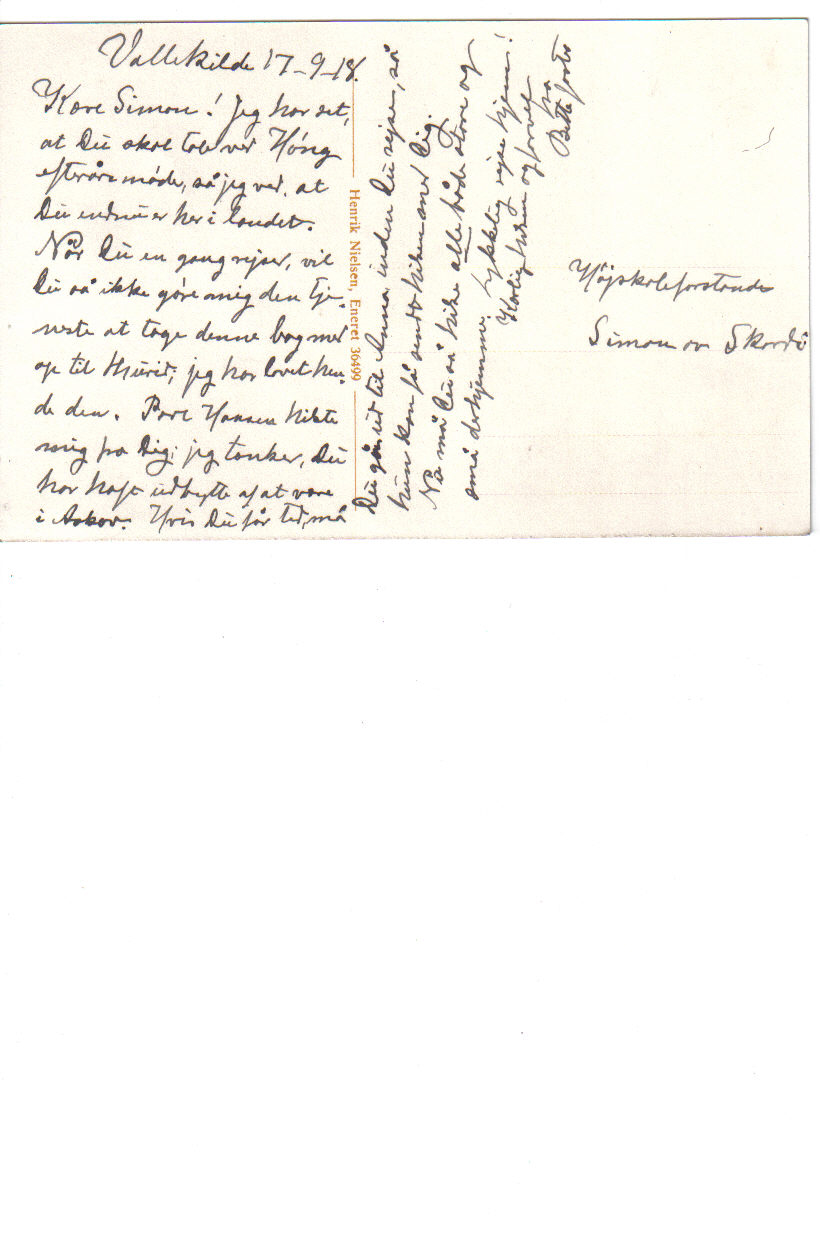 Vallekilde 17-9-18.
Kære Simon! Jeg har set,
at Du skal tale ved Høng
efterårsmøde, så jeg ved, at
Du endnu er her i landet.
Når Du en gang rejser, vil
Du så ikke gøre mig den tje-
neste at tage denne bog med
op til Thurid; jeg har lovet hen-
de den. Povl Hansen hilste
mig fra Dig; jeg tænker, Du
har haft udbytte af at være
i Askov. Hvis Du får tid, må
Du gå ud til Anna inden Du rejser, så
hun kan få sendt hilsen med Dig.
Nå må Du så hilse alle både store og
små derhjemme. Lykkelig rejse hjem!
Kærlig hilsen og farvel
fra
Henrik Nielsen, Eneret 36499
Højskoleforstander
Simon av Skarði